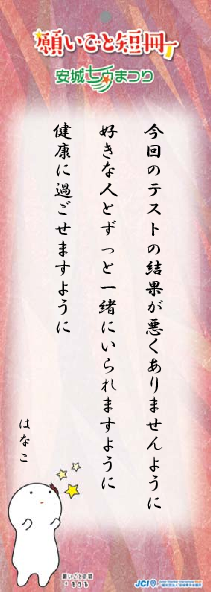 願いごと短冊
安城七夕まつり
今回のテストの結果が悪くありませんように
好きな人とずっと一緒にいられますように
健康に過ごせますように
はなこ
願いごと短冊
JCI